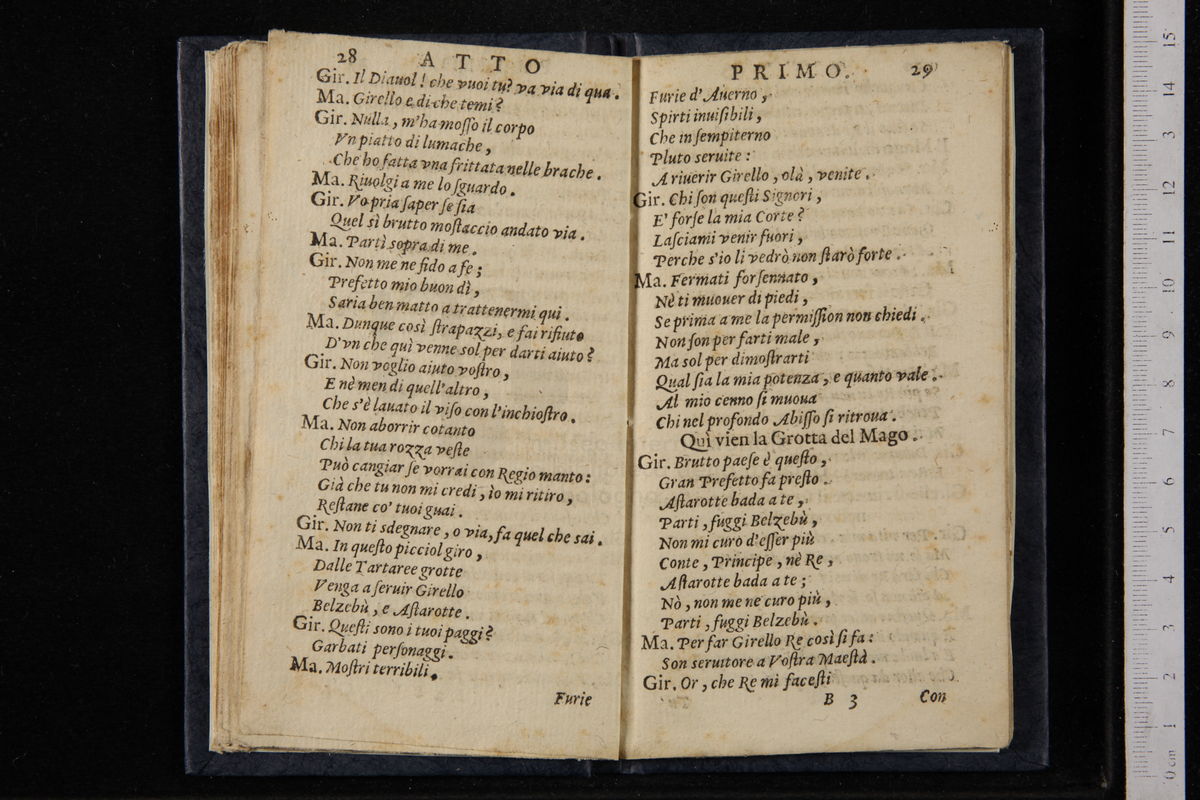 28 ATTO
Gir. Il Diauol! che vuoi tu? va via di qua.
Ma. Girello e di che temi?
Gir. Nulla, m'ha moſſo il corpo
Vn piatto di lumache,
Che ho fatta vna frittata nelle brache.
Ma. Riuolgi a me lo ſguardo.
Gir. Vo pria ſaper ſe ſia
Quel sì brutto moſtaccio andato via.
Ma. Partì sopra di me.
Gir. Non me ne fido a fe;
Prefetto mio buon dì,
Saria ben matto a trattenermi qui.
Ma. Dunque così ſtrapazzi, e fai rifiuto
D'vn che quì venne sol per darti aiuto?
Gir. Non voglio aiuto voſtro,
E nè men di quell'altro,
Che s'è lauato il viſo con l'inchioſtro.
Ma. Non aborrir cotanto
Chi la tua rozza veſte
Può cangiar ſe vorrai con Regio manto:
Già che tu non mi credi, io mi ritiro,
Reſtane co' tuoi guai.
Gir. Non ti sdegnare, o via, fa quel che sai.
Ma. In queſto picciol giro,
Dalle Tartaree grotte
Venga a ſeruir Girello
Belzebù, e Aſtarotte.
Gir. Queſti sono i tuoi paggi?
Garbati perſonaggi.
Ma. Moſtri terribili.
Furie
PRIMO. 29
Furie d'Auerno,
Spirti inuiſibili,
Che in ſempiterno
Pluto seruite:
A riuerir Girello, olà, venite.
Gir. Chi ſon queſti Signori,
E' forſe la mia Corte?
Laſciami venir fuori,
Perche s'io li vedrò non ſtarò forte.
Ma. Fermati forſennato,
Nè ti muouer di piedi,
Se prima a me la permiſſion non chiedi.
Non ſon per farti male,
Ma sol per dimoſtrarti
Qual ſia la mia potenza, e quanto vale.
Al mio cenno ſi muoua
Chi nel profondo Abiſſo ſi ritroua.
Quì vien la Grotta del Mago.
Gir. Brutto paeſe è queſto,
Gran Prefetto fa preſto.
Aſtarotte bada a te,
Parti, fuggi Belzebù,
Non mi curo d'eſſer più
Conte, Principe, nè Re,
Aſtarotte bada a te;
Nò, non me ne curo più,
Parti, fuggi Belzebù.
Ma. Per far Girello Re così ſi fa:
Son seruitore a Voſtra Maeſtà.
Gir. Or, che Re mi faceſti
B 3 Con
15
14
13
12
11
10
9
8
7
6
5
4
3
2
1
0 cm